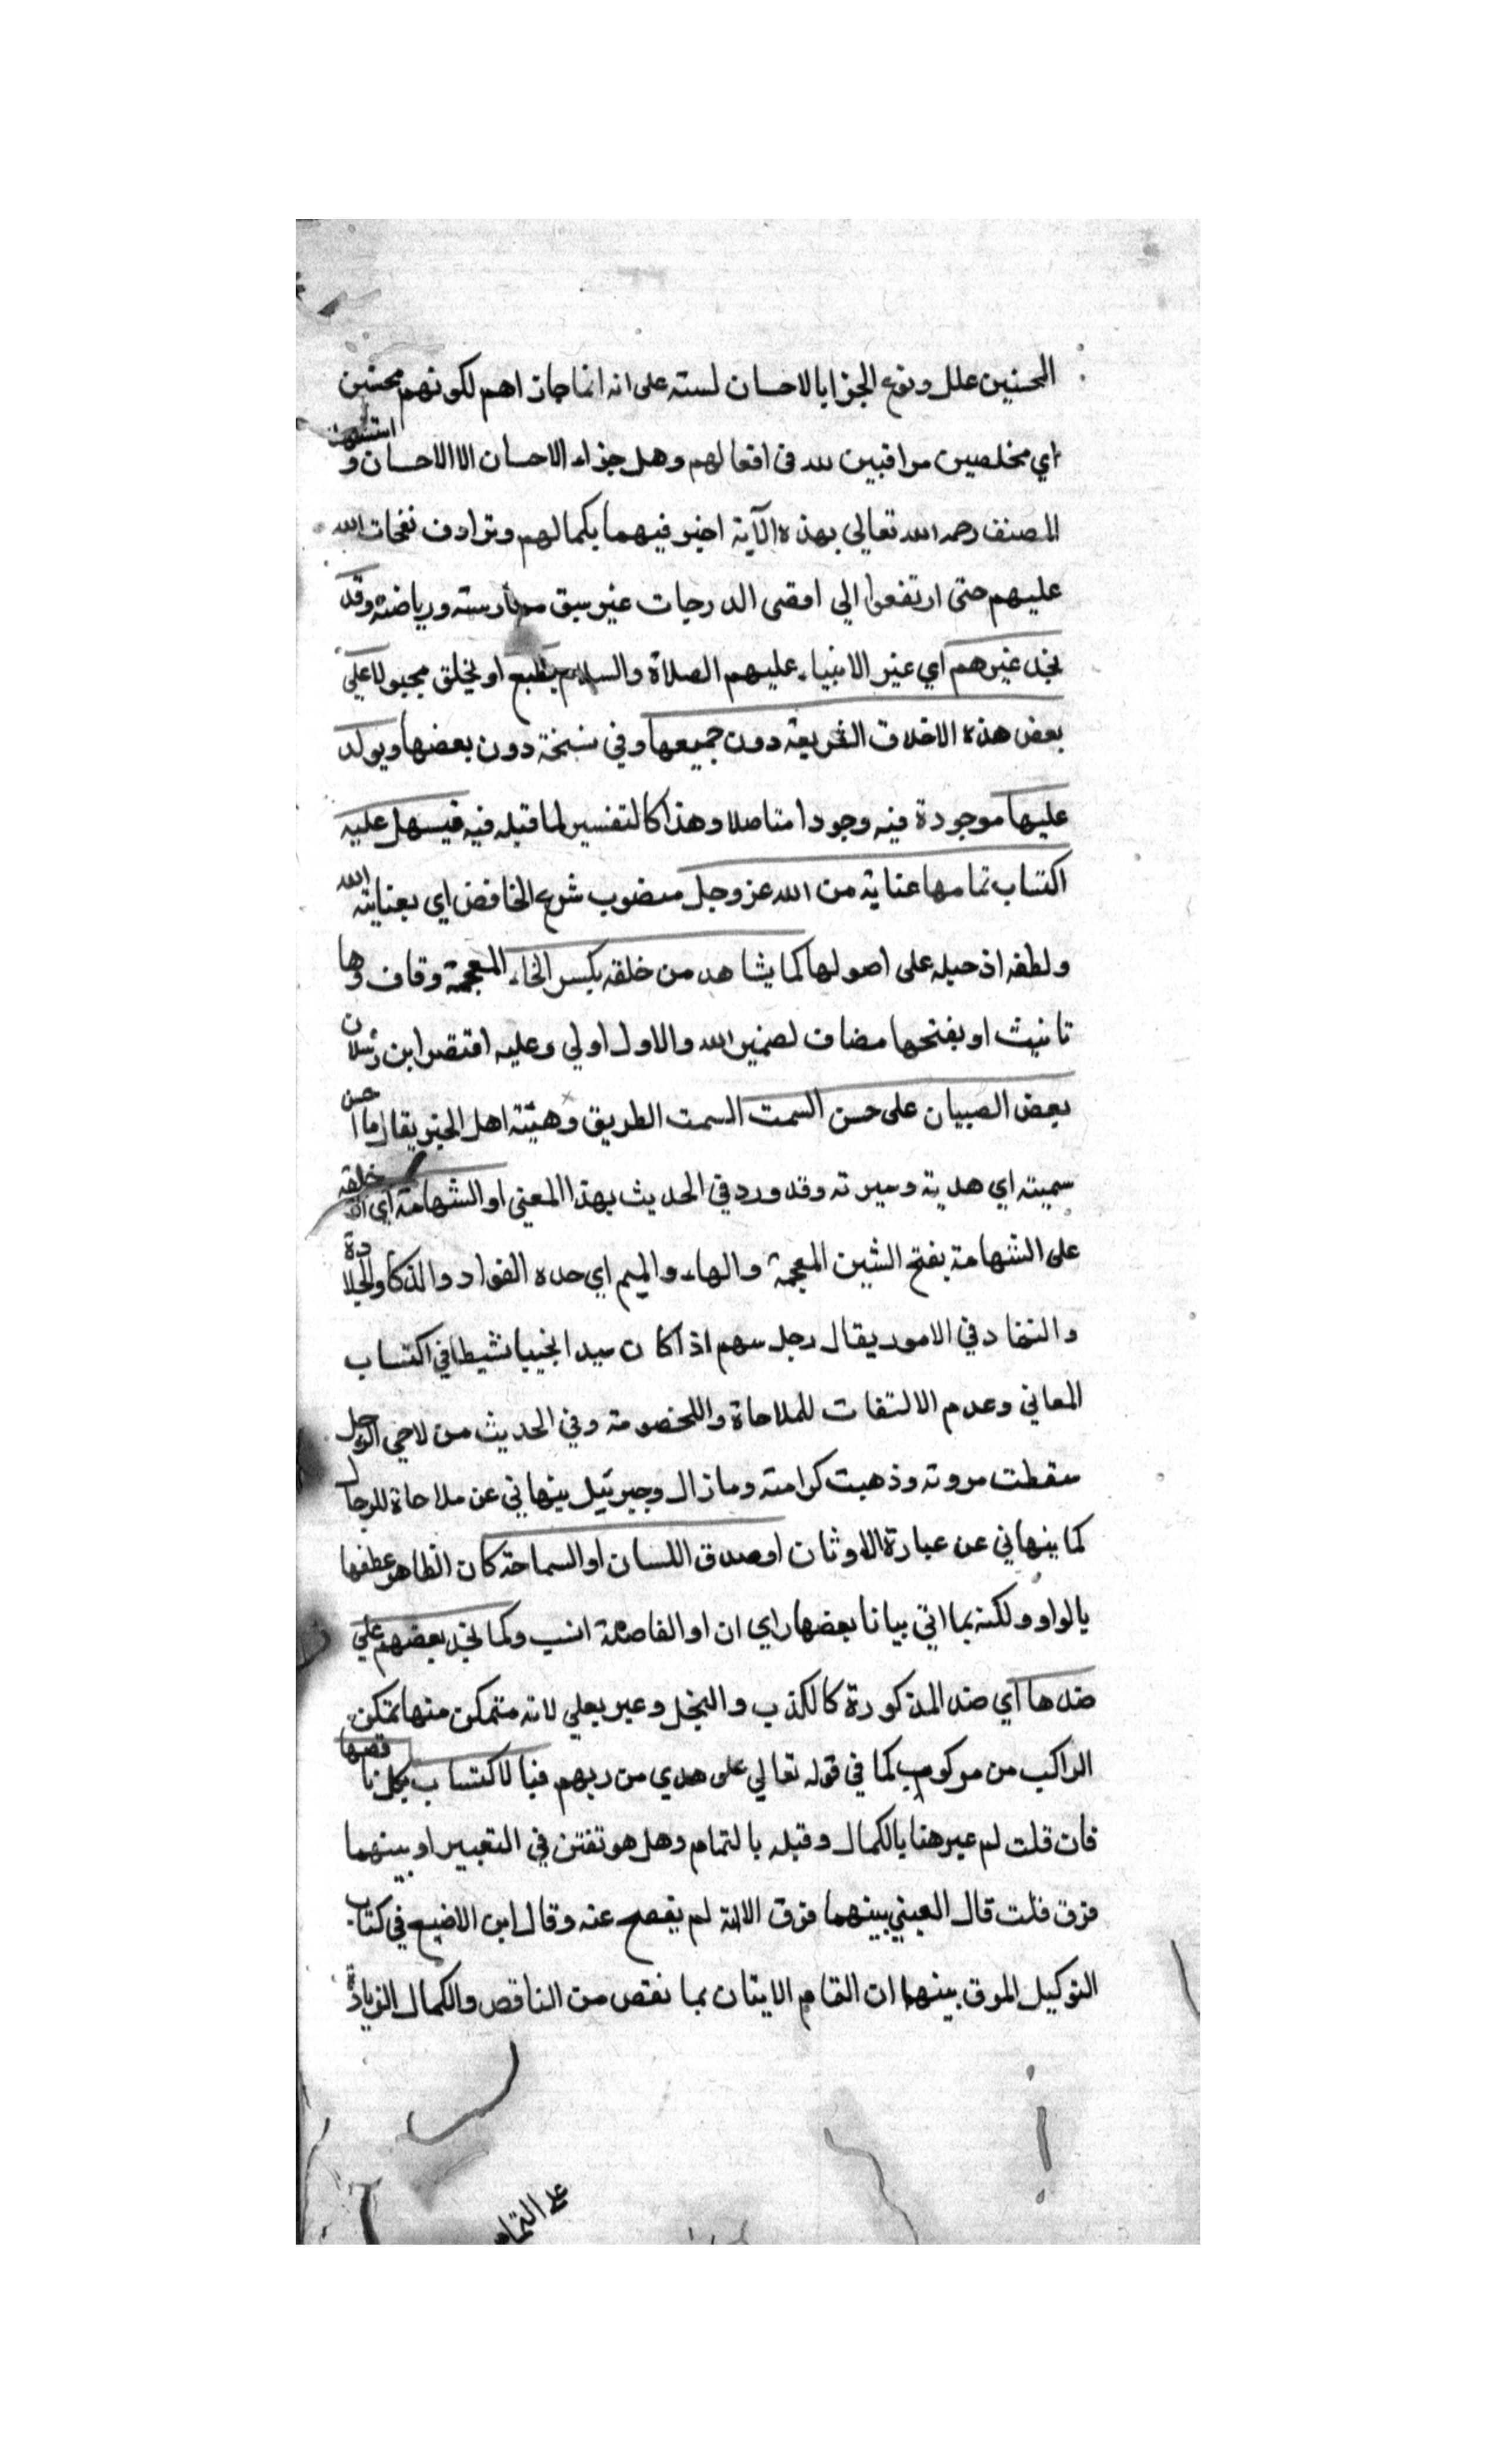 المحسنين علل ونوع الجزا بالاحسان لسته على انه انما جازاهم لكونهم محسنين
اي مخلصين مراقبين لله في افعالهم وهل جزاء الاحسان الا الاحسان و استشهد
المصنف رحمه الله تعالى بهذه الآية اخبر فيهما بكمالهم وترادف نفحات الله
عليهم حتى ارتفعوا الي اقصى الدرجات غير سبق ممارسته ورياضته وقد
نجد غيرهم اي غير الانبياء عليهم الصلاة والسلام يطبع او يخلق مجبولا على
بعض هذه الاخلاق الشريعة دون جميعها وفي نسخة دون بعضها ويولد
عليها موجودة فيه وجودا متاصلا وهذا كالتفسير لما قبله فيه فيسهل عليه
اكتساب تمامها عناية من الله عز وجل منصوب بنزع الخافض اي بعناية الله
ولطفه اذ جبله على اصولها كما يشاهد من خلقه بكسر الخاء المعجمة وقاف وها
تانيث او بفتحها مضاف لضمير الله والاول اولي وعليه اقتصر ابن رسلان
بعض الصبيان على حسن السمت السمت الطريق وهيئة اهل الخير يقال ما احسن
سميته اي هديته وسيرته وقد ورد في الحديث بهذا المعني او الشهامة اي خلقه
على الشهامة بفتح الشين المعجمة والهاء والميم اي حده الفواد والذكا والجلادة
والنفاد في الامور يقال رجل سهم اذا كان سيدا نجيبا نشيطا في اكتساب
المعاني وعدم الالتفات للملاحاة واللخصومة وفي الحديث من لاحي الرجل
سقطت مروته وذهبت كرامته وما زال وجبرئيل ينهاني عن ملاحاة للرجال
كما ينهاني عن عبارة الاوثان او صدق اللسان او السماحة كان الظاهر عطفها
بالواو ولكنه بما اتي بيانا بعضها راي ان او الفاصلة انسب وكما نجد بعضهم علي
ضدها اي ضد المذكورة كالكذب والبخل وعبر بعلي لانه متمكن منها تمكن
الراكب من مركوب كما في قوله تعالي على هدي من ربهم فبالاكتساب يكمل ناقصها
فان قلت لم عبر هنا بالكمال وقبله بالتمام وهل هو تفنن في التعبير او بينهما
فرق قلت قال العيني بينهما فرق الا انه لم يفصح عنه وقال ابن الاضبع في كتاب
التوكيل الموق بينهما ان التمام الايتان بما نقص من الناقص والكمال الزيادة
على التمام